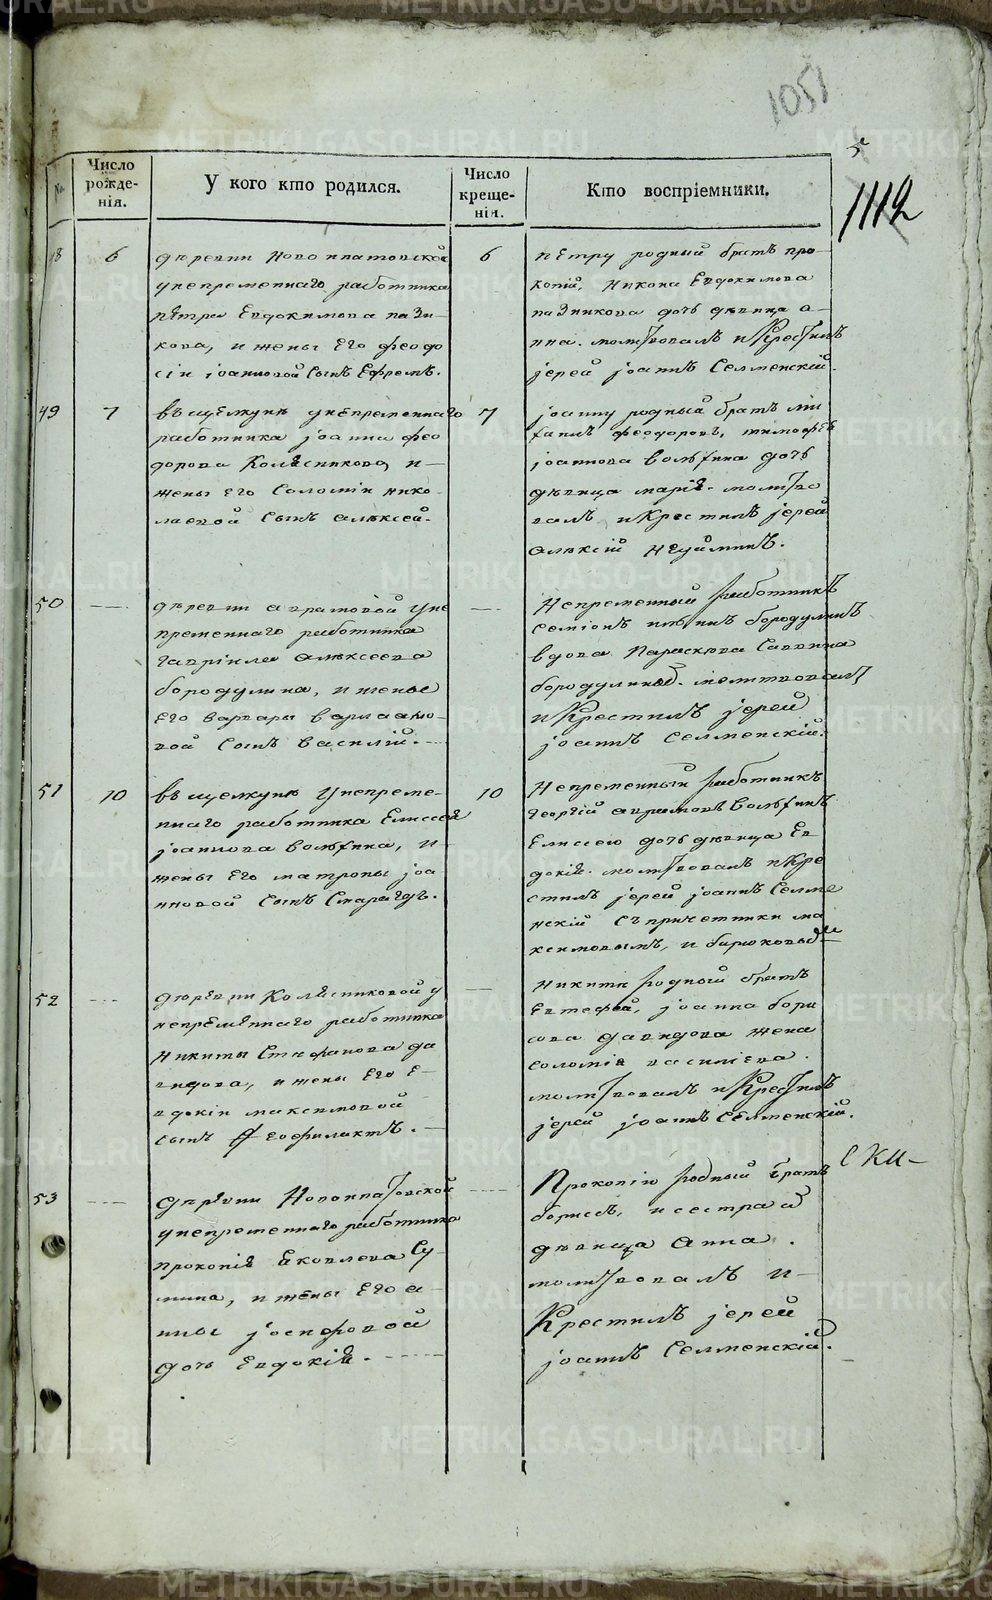 METRIKI.GASO-URAL.RU
1051
5
1112
№
Число рожде-нія.
У кого кто родился.
Число креще-нія.
Кто воспріемники.
6
деревни новоипатовской
унепременнаго работника
петра Евдокимова пази-
кова, и жены Его феодо
сіи іоанновой Сынъ Ефремъ.
6
петру родный братъ про-
копій, никона Евдокимова
пазникова дочь девица а-
нна. молитвовалъ и Крестилъ
іерей іоаннъ Селменскій.
49
7
въ щелкунъ унепременнаго
работника іоанна фео
дорова Колясникова, и
жены Его Соломіи нико-
лаевой Сынъ алѣксей.
7
іоанну родный братъ ми
хаилъ феодоровъ, тимофея
іоаннова дочь
девица марія. молитво
валъ и Крестилъ іерей
алѣксій
50
деревни аврамовой уне
пременнаго работника
гавріила алѣксеева
бородулина, и жены
Его варвары варлаамо-
вой Сынъ василій.
Непременный работникъ
Семіонъ бородулинъ
вдова Параскева Саввина
бородулиныхъ. молитвовалъ
и Крестилъ іерей
іоаннъ Селменскій.
51
10
въ щелкунъ унепреме-
ннаго работника Елисея
іоаннова , и
жены Его матроны іоа
нновой Сынъ Смарагдъ.
10
Непременный работникъ
георгій аврамовъ
Елисею дочь девица Ев
докія. молитвовалъ и Кре
стилъ іерей іоаннъ Селме
нскій Съ причетники ма
ксимовымъ, и бирюковы
52
деревни Колясниковой у
непременнаго работника
Никиты Стефанова да
видова, и жены Его Е-
вдокіи максимовой
сынъ феофилактъ.
никити родный братъ
Евтефей, іоанна бори
сова давидова жена
соломія василіева.
молитвовалъ и Крестилъ
іерей іоаннъ Селменскій.
53
деревни Новоипатовской
унепременнаго работника
прокопія Яковлева Су-
мина, и жены Его а-
нны іосифовой
дочь Евдокія.
Прокопію родный братъ
борисъ, и сестра
девица анна.
молитвовалъ и
Крестилъ іерей
іоаннъ Селменскій.